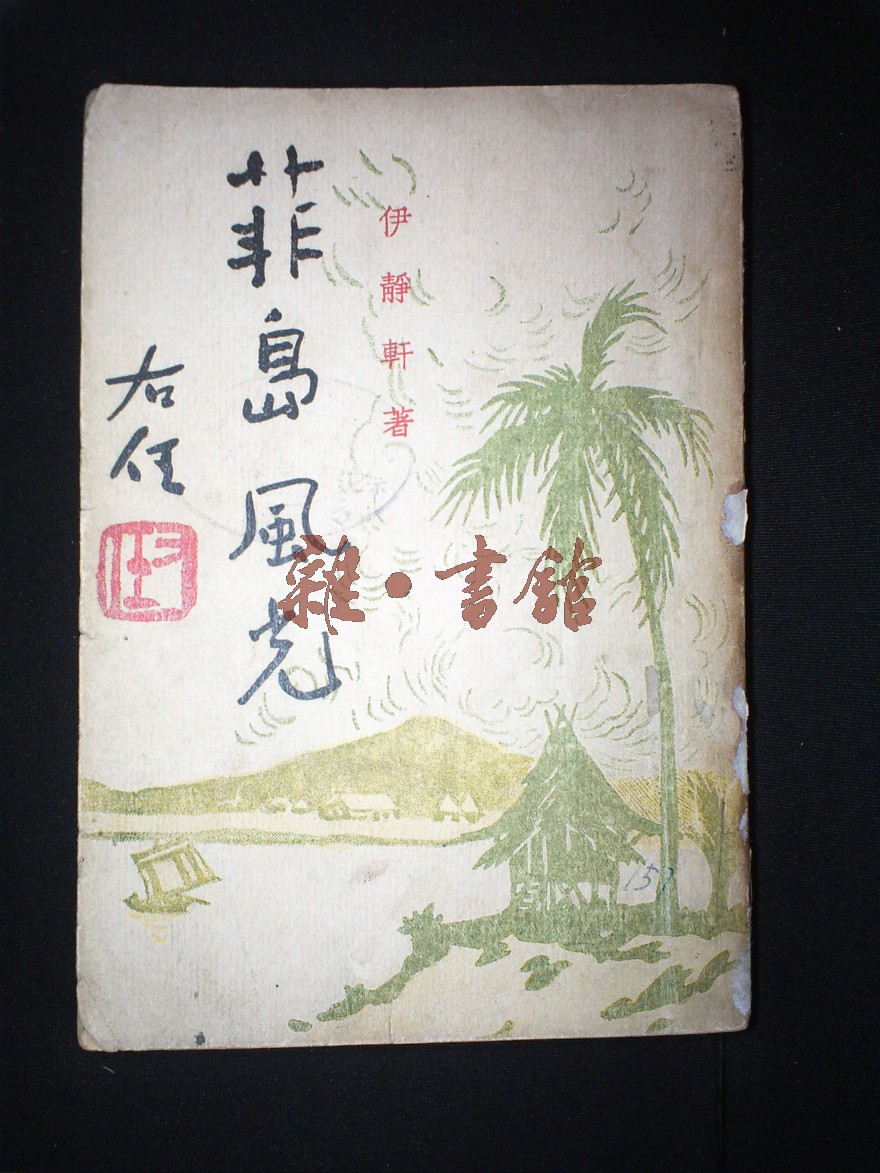 伊靜軒著
菲島風光
右任
雜·書館
157